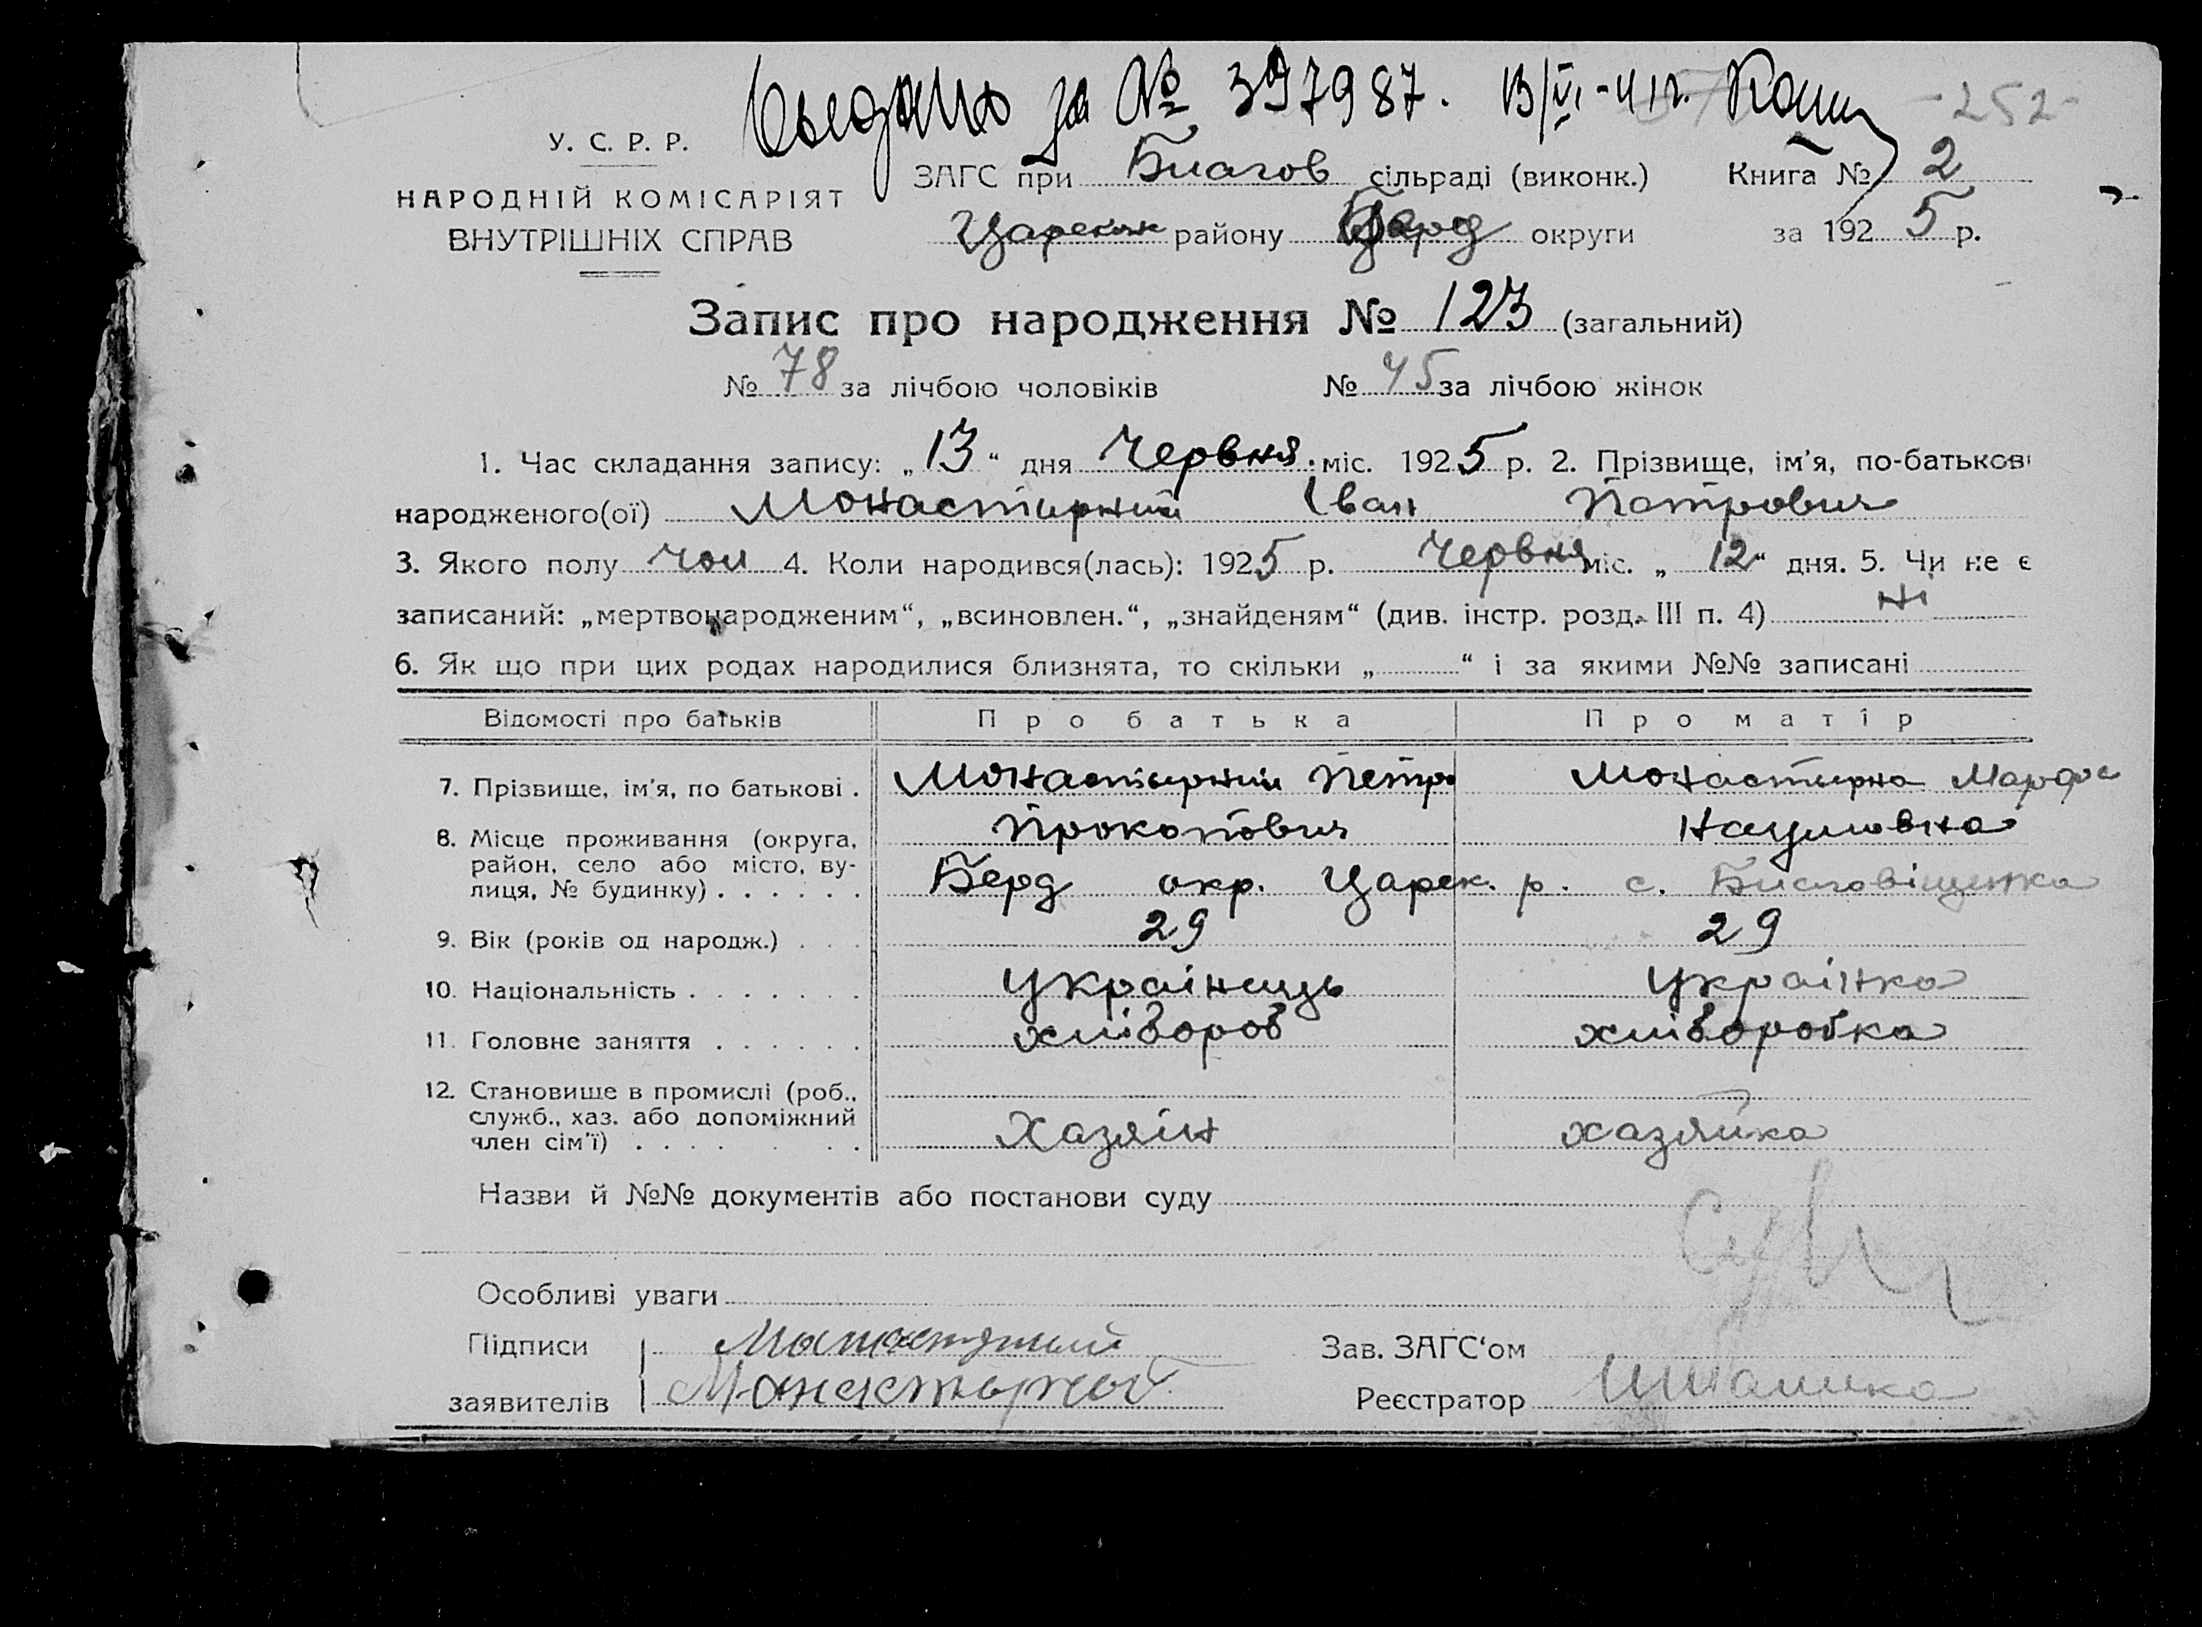 за № 397987. 13/VI-41г.
-252-
У. С. Р. Р.
НАРОДНІЙ КОМІСАРІЯТ
ВНУТРІШНІХ СПРАВ
ЗАГС при Благов сільраді (виконк.) Книга № 2
Царекон району Берд округи за 1925 р.
Запис про народження № 123 (загальний)
№ 78 за лічбою чоловіків № 45 за лічбою жінок
1. Час складання запису: „13“ дня Червня міс. 1925 р. 2. Прізвище, ім'я, по-батькові
народженого(ої) Монастирний Іван Петрович
3. Якого полу чол 4. Коли народився(лась): 1925 р. Червня міс. „12“ дня. 5. Чи не є
записаний: „мертвонародженим“, „всиновлен.“, „знайденям“ (див. інстр. розд. III п. 4) Ні
6. Як що при цих родах народилися близнята, то скільки „ “ і за якими №№ записані
Відомості про батьків Про батька Про матір
7. Прізвище, ім'я, по батькові . Монастирний Петро Монастирна Марфа
Прокопович Наумовна
8. Місце проживання (округа,
район, село або місто, ву-
лиця, № будинку) . . . . . . Берд окр. Царек. р. с. Благовіщенка
9. Вік (років од народж.) . . . 29 29
10. Національність . . . . . . . Українець Українка
11. Головне заняття . . . . . . хлібороб хліборобка
12. Становище в промислі (роб.,
служб., хаз. або допоміжний
член сім'ї) . . . . . . Хазяїн хазяйка
Назви й №№ документів або постанови суду
Особливі уваги
Підписи Зав. ЗАГС'ом
заявителів Монастырный Реєстратор